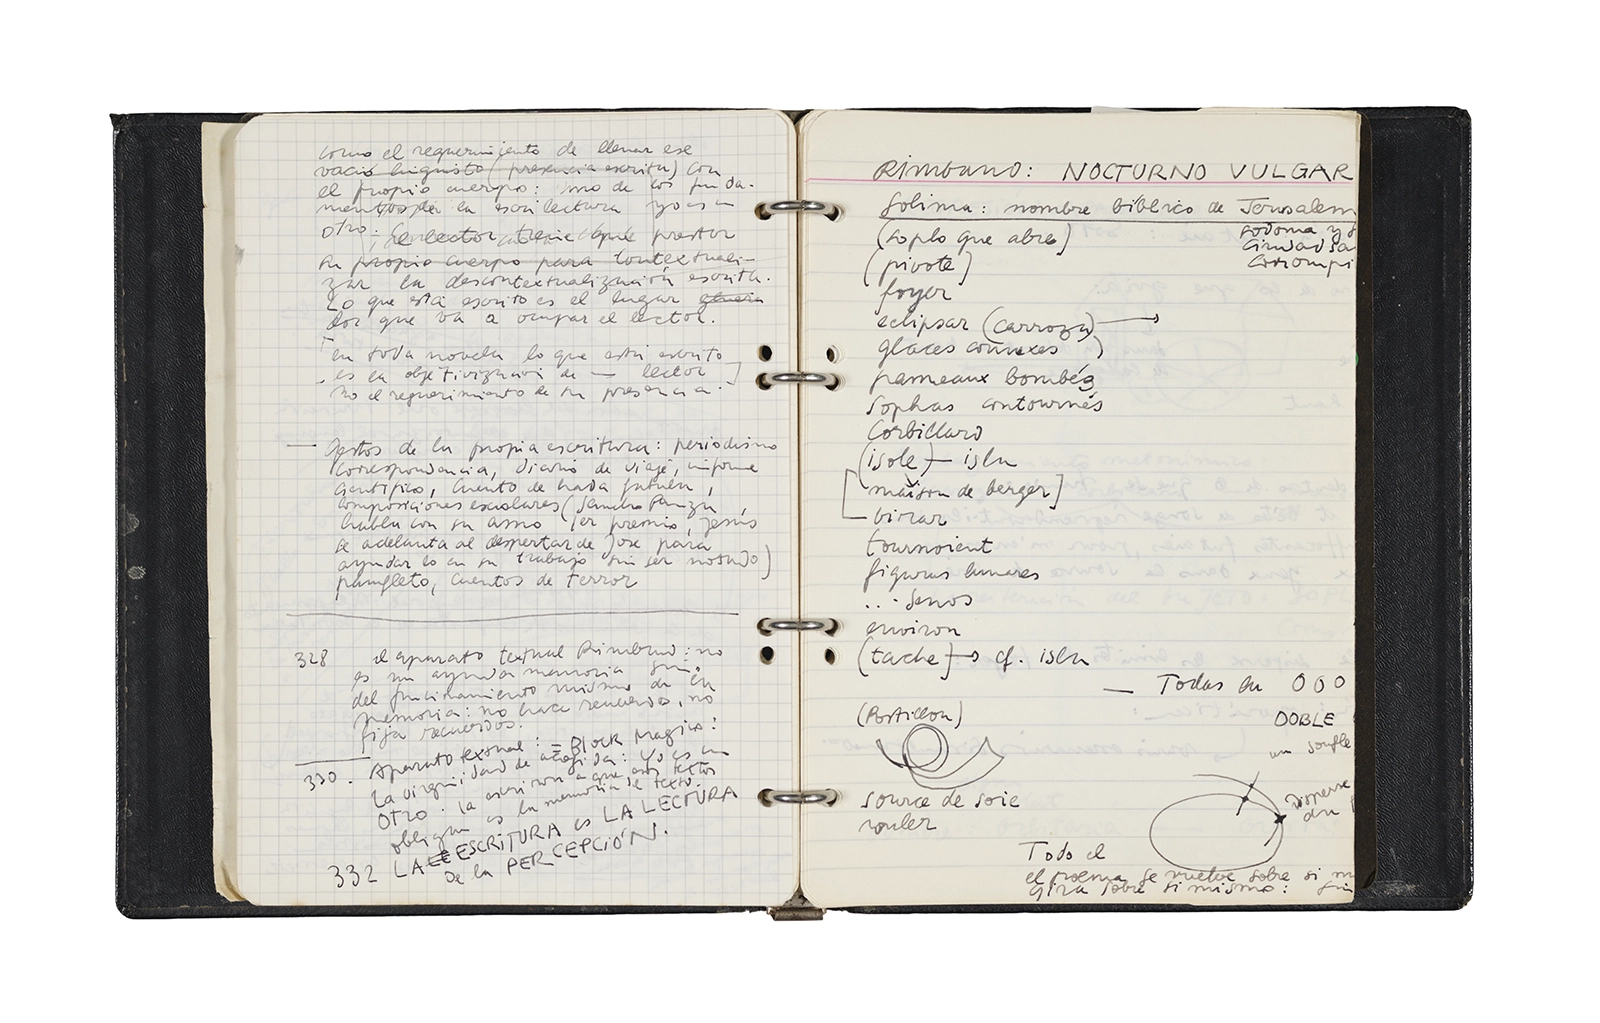 como el requerimiento de llenar ese
vacio linguisto (presencia escrita) con
el propio cuerpo: uno de los funda-
mentos de la escrilectura yo es un
otro; el lector tiene que prestar
su propio cuerpo para contextuali-
zar la descontextualización escrita.
Lo que está escrito es el lugar
dor que va a ocupar el lector.
en toda novela lo que está escrito
es la objetivización de — lector]
no el requerimiento de su presencia.
— Gestos de la propia escritura: periodismo
correspondencia, diario de viaje, informe
científico, cuento de hada,
composiciones escolares (Sancho Panza
habla con su amo 1er premio, Jesús
se adelanta al despertar de José para
ayudarlo en su trabajo sin ser notado)
panfleto, cuentos de terror
328 el aparato textual Rimbaud: no
es un ayuda memoria sino
del funcionamiento mismo de la
memoria: no hace recuerdos, no
fija recuerdos.
330. Aparato textual: = Block Magico:
La virginidad de acogida: Yo es un
Otro. la escritura a que esos textos
obligan es la memoria de texto.
332 LA ESCRITURA es LA LECTURA
De la PERCEPCIÓN.
Rimbaud: NOCTURNO VULGAR
Solima: nombre bíblico de Jerusalem
(soplo que abre) sodoma y g
(pivote] ciudad sa
foyer corrompi
eclipsar (carroza) →
glaces convexes )
panneaux bombés
Sophas contournés
Corbillard
(isole) — isla
[maison de berger]
virar
tournoient
figuras lunares
... Senos
environ
(tache) → cf. isla
— Todas en 000
(Postillon) DOBLE
un souffle
source de soie disperse
rouler
Todo el
el poema se vuelve sobre si m
gira sobre si mismo: